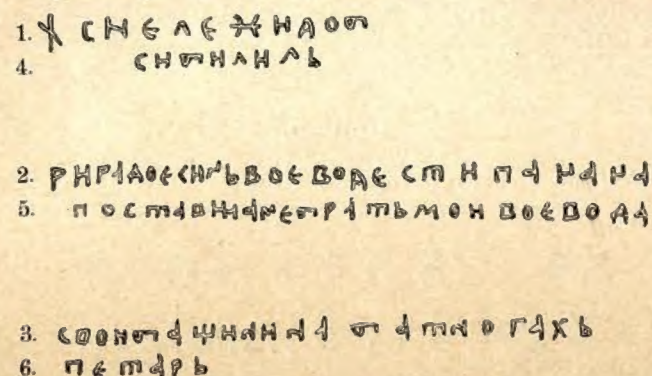 1. + СИЕ ЛЕЖИ ДОБ
4. СИ БИЛИГЬ
2. РИ РАДОЕ СИНЬ ВОЕВОДЕ СТИПАНА НА
5. ПОСТАВИ НА МЕ БРАТЬ МОИ ВОЕВОДА
3. СВОИ БАЩИНИ НА БАТНОГАХЬ
6. ПЕТАРЬ